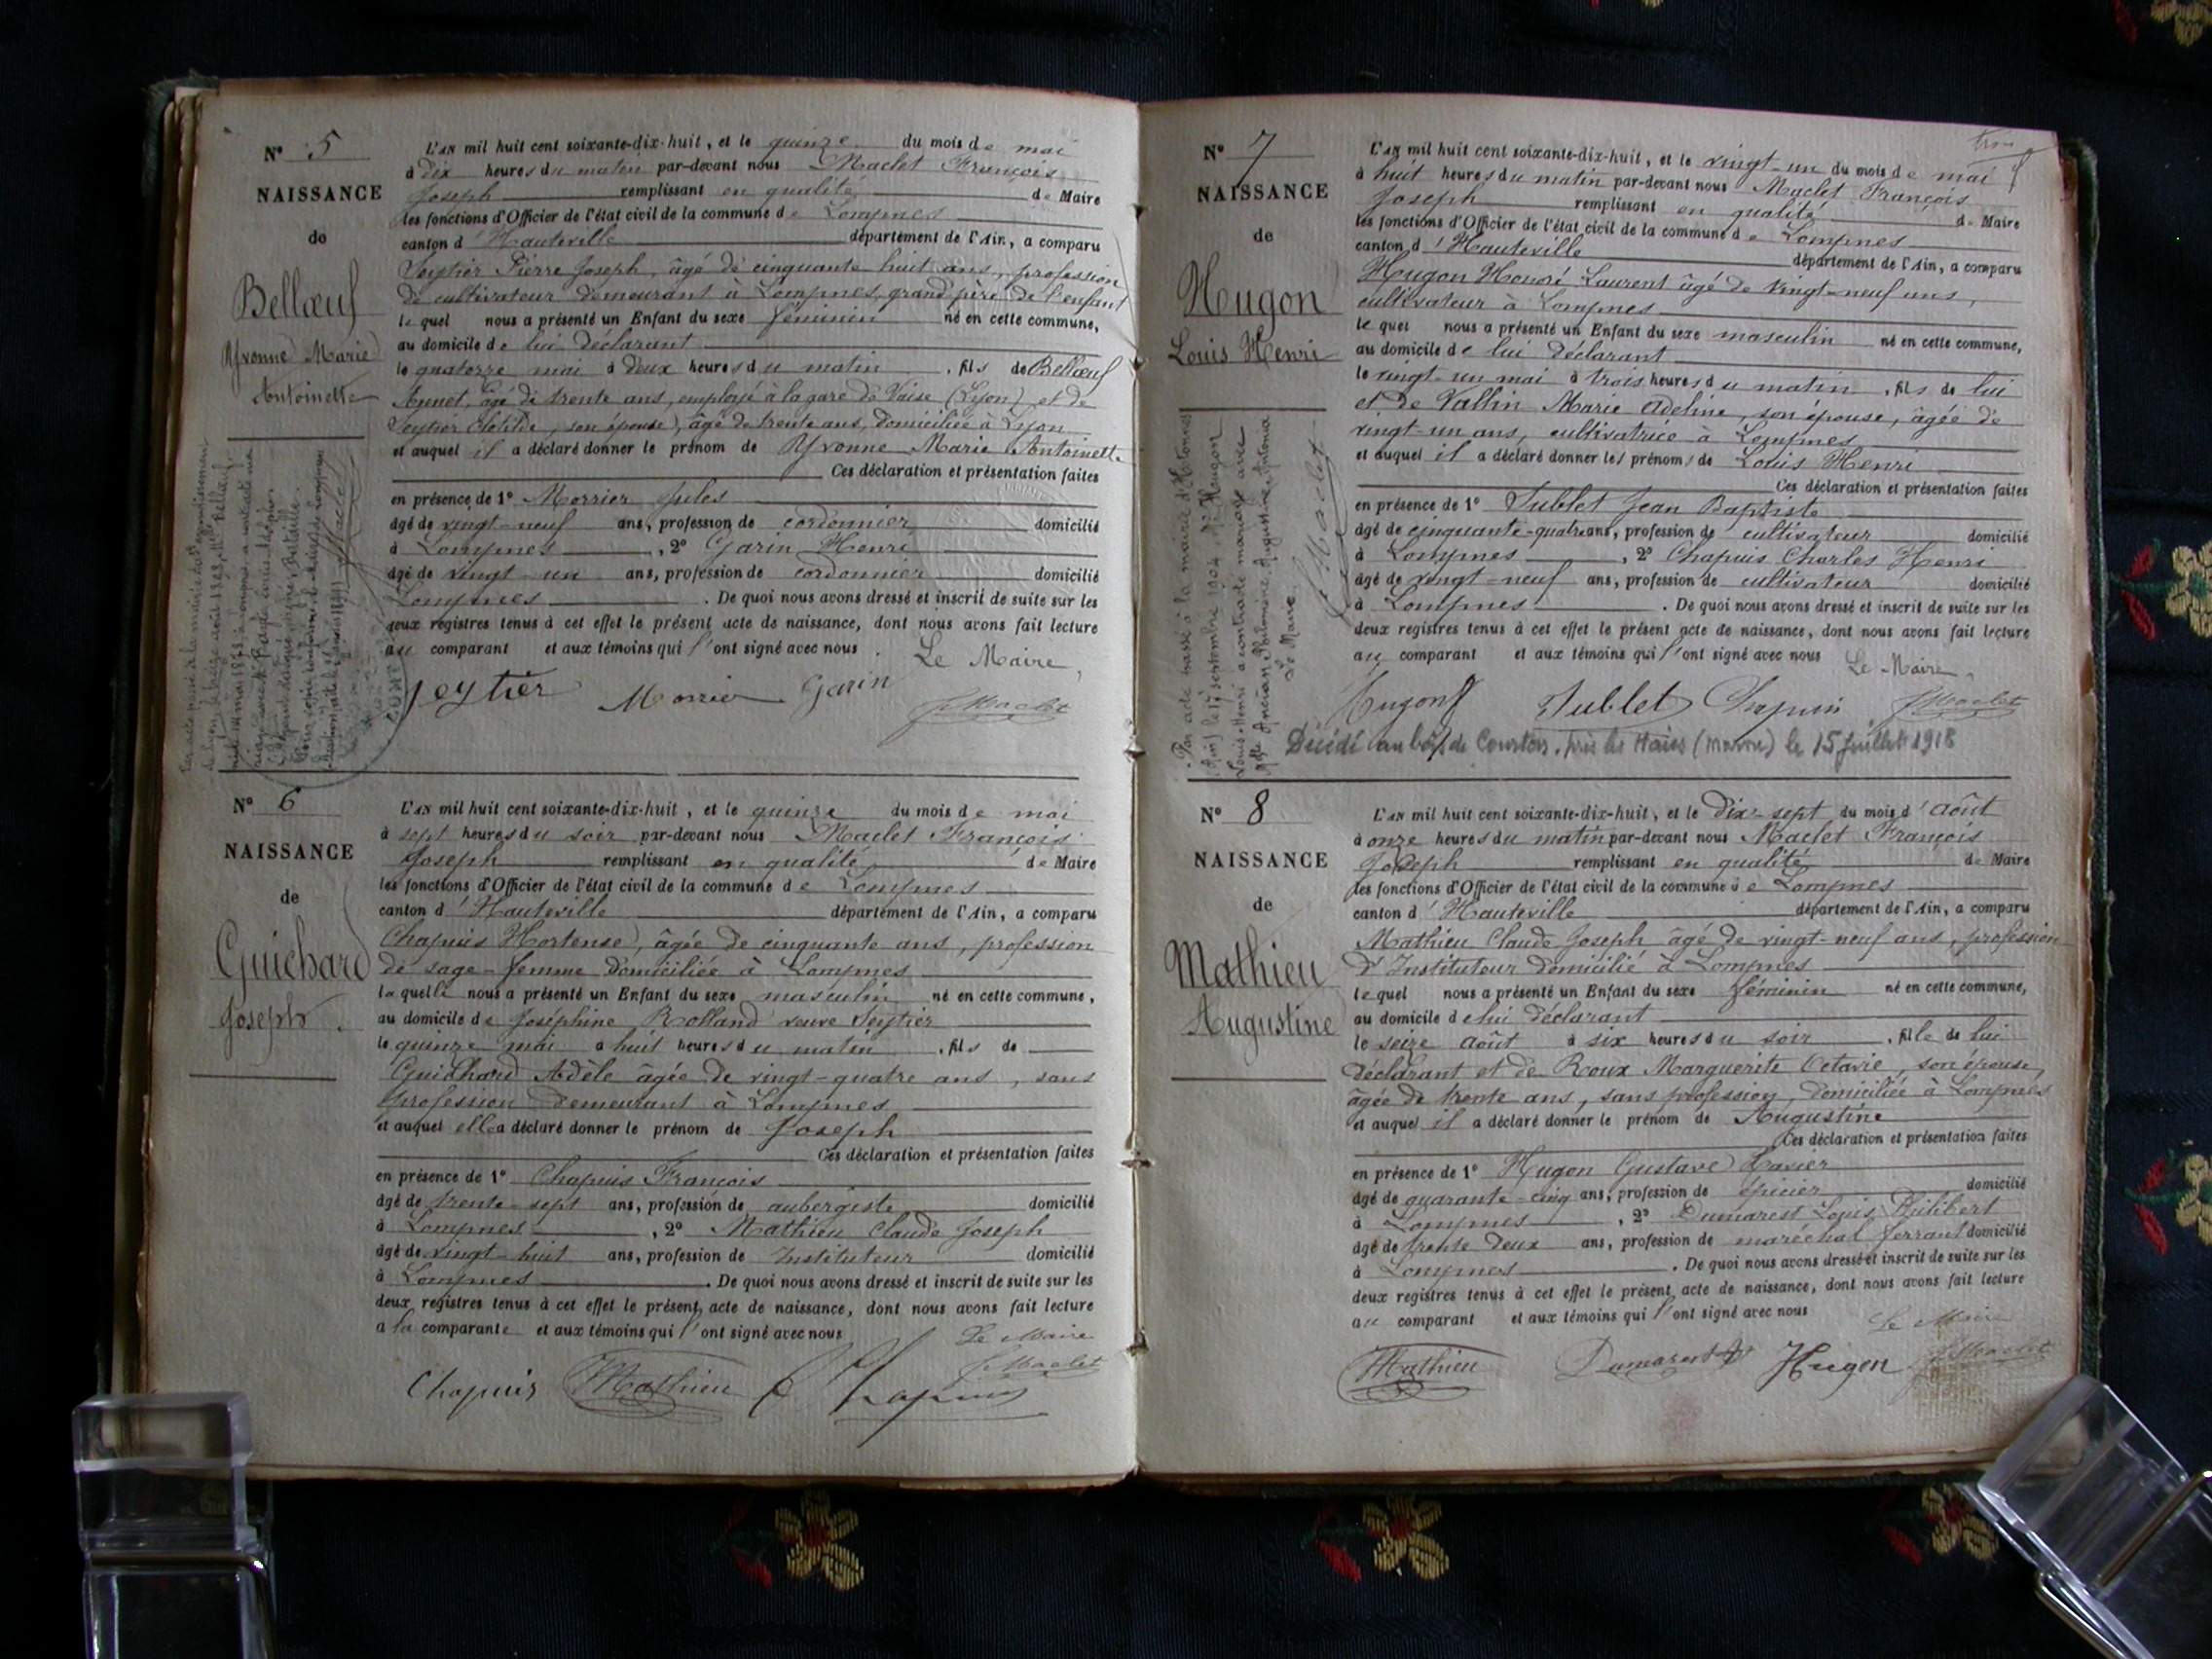 N° 5
NAISSANCE
de
Bellœuf
Yvonne Marie
Antoinette
L'AN mil huit cent soixante-dix-huit, et le quinze du mois de mai
à dix heures du matin par-devant nous Maclet François
Joseph remplissant en qualité de Maire
les fonctions d'Officier de l'état civil de la commune de Lompnes
canton d'Hauteville département de l'Ain, a comparu
Seytier Pierre Joseph, âgé de cinquante huit ans, profession
de cultivateur demeurant à Lompnes, grand père de l'enfant
lequel nous a présenté un Enfant du sexe féminin né en cette commune,
au domicile de lui déclarant
le quatorze mai à deux heures du matin, fils de Bellœuf
Annet, âgé de trente ans, employé à la gare de Vaise (Lyon) et de
Seytier Clotilde, son épouse, âgé de trente ans, domiciliée à Lyon
et auquel il a déclaré donner le prénom de Yvonne Marie Antoinette
Ces déclaration et présentation faites
en présence de 1° Morrier Jules
âgé de vingt-neuf ans, profession de cordonnier domicilié
à Lompnes, 2° Garin Henri
âgé de vingt-un ans, profession de cordonnier domicilié
Lompnes. De quoi nous avons dressé et inscrit de suite sur les
deux registres tenus à cet effet le présent acte de naissance, dont nous avons fait lecture
au comparant et aux témoins qui l'ont signé avec nous.
Le Maire,
Seytier Morrier Garin
J. Maclet
N° 6
NAISSANCE
de
Guichard
Joseph.
L'AN mil huit cent soixante-dix-huit, et le quinze du mois de mai
à sept heures du soir par-devant nous Maclet François
Joseph remplissant en qualité de Maire
les fonctions d'Officier de l'état civil de la commune de Lompnes
canton d'Hauteville département de l'Ain, a comparu
Chapuis Hortense, âgée de cinquante ans, profession
de sage-femme domiciliée à Lompnes
laquelle nous a présenté un Enfant du sexe masculin né en cette commune,
au domicile de Joséphine Rolland veuve Seytier
le quinze mai à huit heures du matin, fils de
Guichard Adèle âgée de vingt-quatre ans, sans
profession demeurant à Lompnes
et auquel elle a déclaré donner le prénom de Joseph
Ces déclaration et présentation faites
en présence de 1° Chapuis François
âgé de trente-sept ans, profession de aubergiste domicilié
à Lompnes, 2° Mathieu Claude Joseph
âgé de vingt-huit ans, profession de Instituteur domicilié
à Lompnes. De quoi nous avons dressé et inscrit de suite sur les
deux registres tenus à cet effet le présent acte de naissance, dont nous avons fait lecture
a la comparante et aux témoins qui l'ont signé avec nous
Le Maire
J. Maclet
Chapuis Mathieu
N° 7
NAISSANCE
de
Hugon
Louis Henri
Par acte passé à la mairie d'Hotonnes
(Ain) le 17 septembre 1904 Mr Hugon
Louis Henri a contracté mariage avec
Melle Philomène Augustine Antonia
Le Maire.
J. Maclet
L'AN mil huit cent soixante-dix-huit, et le vingt-un du mois de mai
à huit heures du matin par-devant nous Maclet François
Joseph remplissant en qualité de Maire
les fonctions d'Officier de l'état civil de la commune de Lompnes
canton d'Hauteville département de l'Ain, a comparu
Hugon Honoré Laurent âgé de vingt-neuf ans,
cultivateur à Lompnes
lequel nous a présenté un Enfant du sexe masculin né en cette commune,
au domicile de lui déclarant
le vingt-un mai à trois heures du matin, fils de lui
et de Vallin Marie Adeline, son épouse, âgée de
vingt-un ans, cultivatrice à Lompnes
et auquel il a déclaré donner les prénoms de Louis Henri
Ces déclaration et présentation faites
en présence de 1° Jublet Jean Baptiste
âgé de cinquante-quatre ans, profession de cultivateur domicilié
à Lompnes, 2° Chapuis Charles Henri
âgé de vingt-neuf ans, profession de cultivateur domicilié
à Lompnes. De quoi nous avons dressé et inscrit de suite sur les
deux registres tenus à cet effet le présent acte de naissance, dont nous avons fait lecture
au comparant et aux témoins qui l'ont signé avec nous
Le Maire,
Hugon Jublet Chapuis J. Maclet
Décédé au bois de Courton, près les Haies (Marne) le 15 juillet 1918
N° 8
NAISSANCE
de
Mathieu
Augustine
L'AN mil huit cent soixante-dix-huit, et le dix-sept du mois d'Août
à onze heures du matin par-devant nous Maclet François
Joseph remplissant en qualité de Maire
les fonctions d'Officier de l'état civil de la commune de Lompnes
canton d'Hauteville département de l'Ain, a comparu
Mathieu Claude Joseph âgé de vingt-neuf ans, profession
d'Instituteur domicilié à Lompnes
lequel nous a présenté un Enfant du sexe féminin né en cette commune,
au domicile de lui déclarant
le seize Août à six heures du soir, fille de lui
déclarant et de Roux Marguerite Octavie, son épouse,
âgée de trente ans, sans profession, domiciliée à Lompnes
et auquel il a déclaré donner le prénom de Augustine
Ces déclaration et présentation faites
en présence de 1° Hugon Gustave Xavier
âgé de quarante-cinq ans, profession de épicier domicilié
à Lompnes, 2° Dumarest Louis Philibert
âgé de trente deux ans, profession de maréchal ferrant domicilié
à Lompnes. De quoi nous avons dressé et inscrit de suite sur les
deux registres tenus à cet effet le présent acte de naissance, dont nous avons fait lecture
au comparant et aux témoins qui l'ont signé avec nous
Le Maire
Mathieu Dumarest Hugon J. Maclet